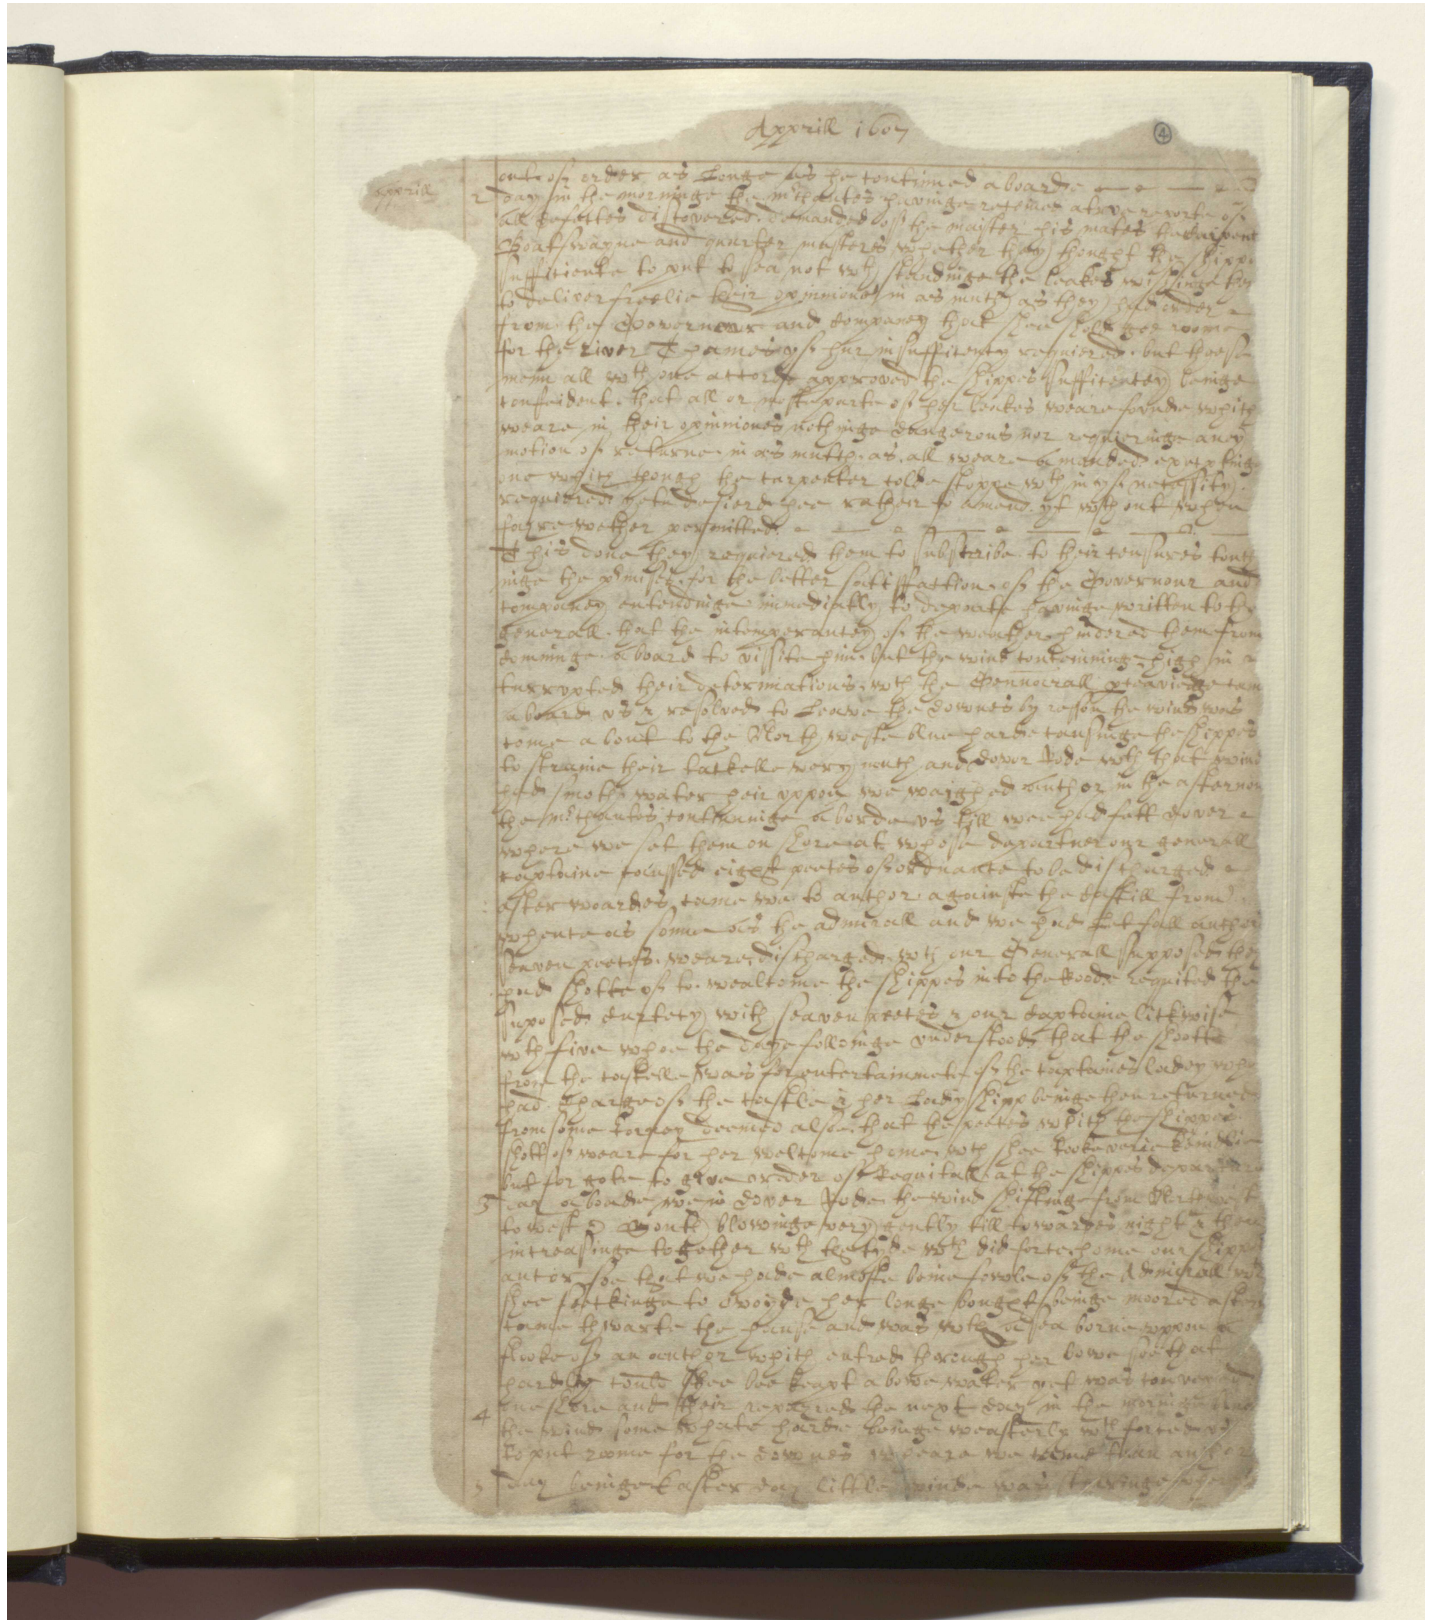 Apprill 1607
4
Apprill
out of order as Longe as he continued aboarde
2 day in the morninge the m^rchantes havinge receiued a true reporte of
all defettes discovered demanded of the maister his mates the Carpent
Boatswayne and quarter masters whether they thought the shippe
sufficiente to put to sea not w^th standinge the leakes wissinge them
to deliver freelie their opinniones in as mutch as they had order
from the Governour and Companey that shee shold goe roome
for the River Thames yf hur insufficientcy requiered. but theese
menn all w^th one accorde approved the shippes sufficientcy beinge
confident that all or moste parte of her leakes weare founde which
weare in their opinniones nothinge dangerous nor requieringe aney
motion of returne in as mutch as all weare amended exceptinge
one which though the carpenter colde stoppe w^th in yf necessity
requiered yet desiered hee rather to amend yt w^th out when
fayre wether permitted
This done they requiered them to subscribe to their censures touch
inge the p^rmises for the better satisffaction of the Governour and
Companey entendinge immediatly to departe havinge written to the
Generall that the intemperancey of the weather hindered them from
comminge aboard to vissite him. but the wind contenninge high in
turrupted their determinations w^th the Gennerall
aboard vs & resolved to Leave the downes by reason the wind was
come about to the North weste blue harde causinge the shippes
to straine their tackelle very mutch and dover Rode w^th that wind
had smoth water heir uppon we waighed anchor in the afternon
the m^rchantes continninge aborde vs till wee had fett Dover
where we set them on shore at whose departuer our generall
captaine caussed eight peeces of ordnance to be discharged
after woardes came we to anchor againste the Castill from
whence as soone as the admirall and we had Let fall anchor
seaven peeces weare discharged w^ch our Generall supposed they
had shotte of to wealcome the shippes into the Roode requited the
suposed curtecy with seaven peeces & our Captaine lickwise
w^th five whoe the daye followinge understoode that the shotte
from the castelle was for entertainmente of the captaines ladey who
had Charge of the castle & her Ladyshipp beinge then returned
from some Jorney deemed also that the peeces which the shippes
shott of weare for her welcome home w^ch shee tooke verie kindlie
but forgote to give order of Requitall at the shippes departure
3 day aboade we in dover Rode the wind shiftinge from Northwest
to west & South blowinge very gently till towardes night & then
increasinge together w^th the tyde w^ch did fortechome our shippes
ancor soe that we hade almoste beine fowle of the Admirall
shee seekinge to avoyde her longe bought beinge moored astern
came thwarte the hause and was w^th a sea borne uppon
flooke of an anchor which entred thorough her bowe soe that
hardly could shee bee keapt above water yet was convayed
one shore and their repayred the next day in the morninge
4 the wind some whate harde beinge weasterly w^ch forced us
to put roome for the downes wheare we came to an anchor
5 day beinge Easter day little winde was stirringe